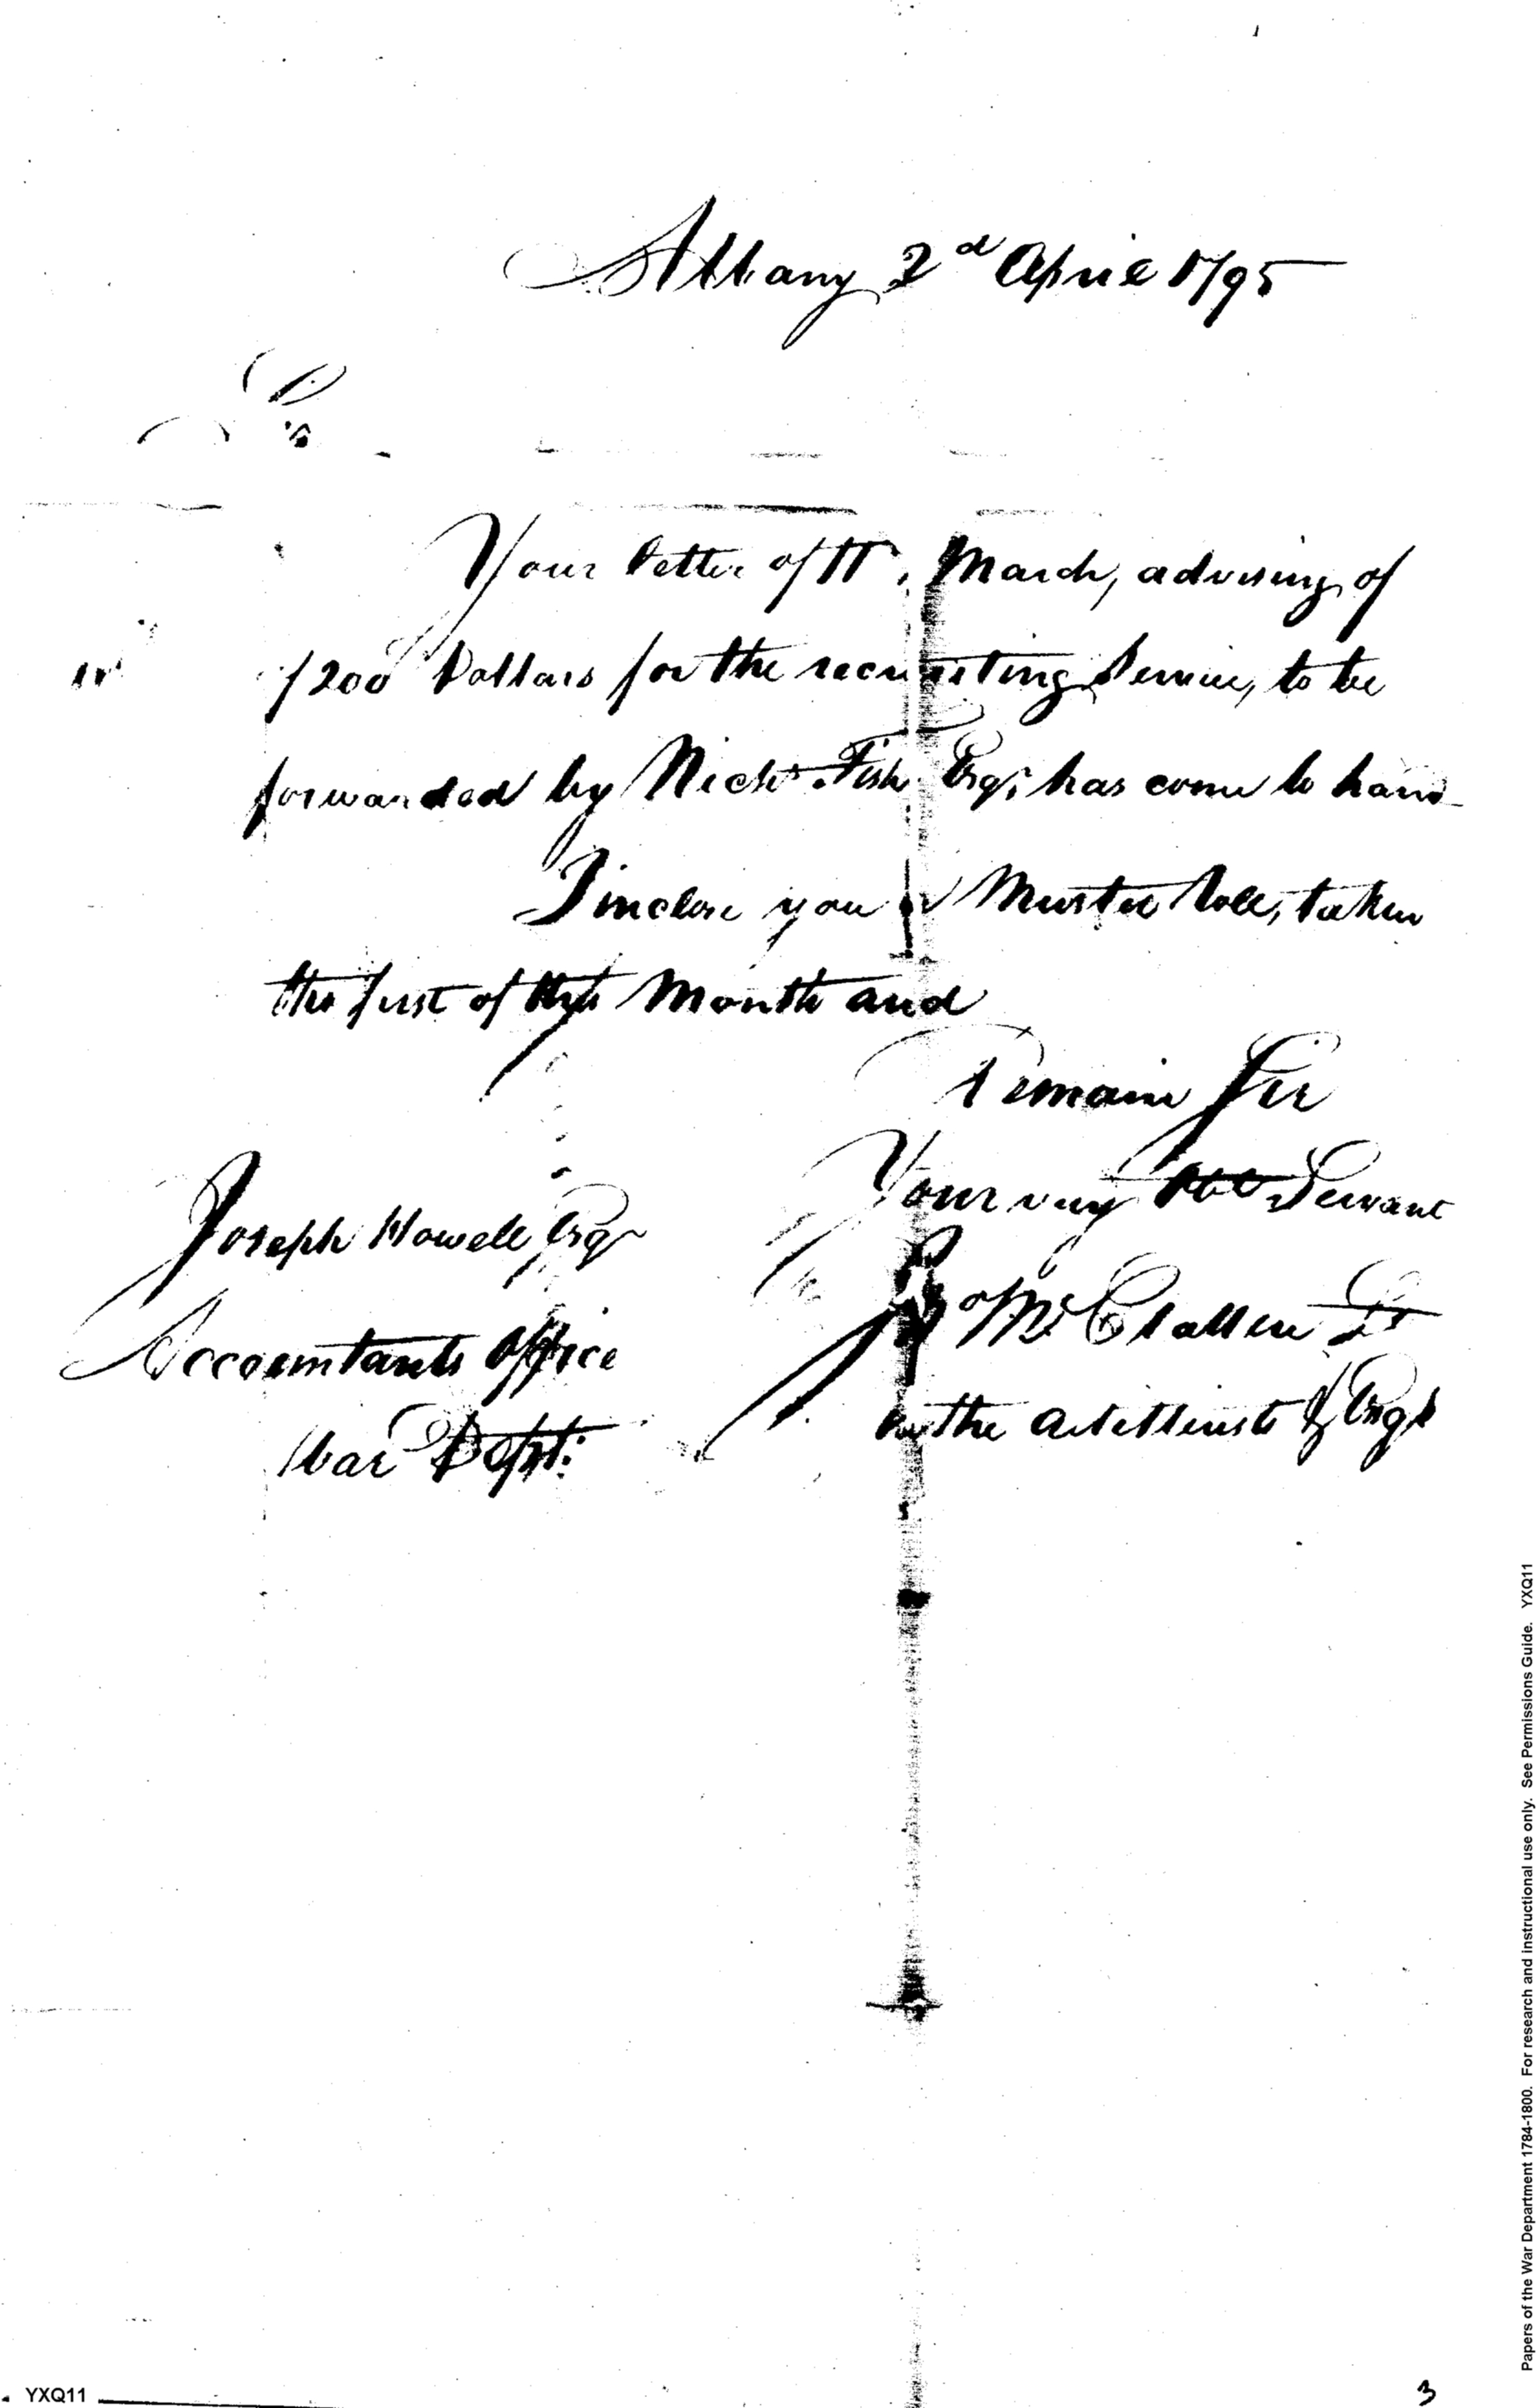 Albany 2d April 1795
Sir
Your letter of March, advising of
1200 Dollars for the recruiting Service, to be
forwarded by Nichs. Fish Esqr; has come to hand
I inclose you a Muster Roll, taken
the first of this Month and
Remain Sir
Your very Obt Servant
Joseph Howell Esqr
McClallen Lt
Accountants Office
in the Artillerists & Engrs
War Dept:
YXQ11
3
Papers of the War Department 1784-1800. For research and instructional use only. See Permissions Guide. YXQ11